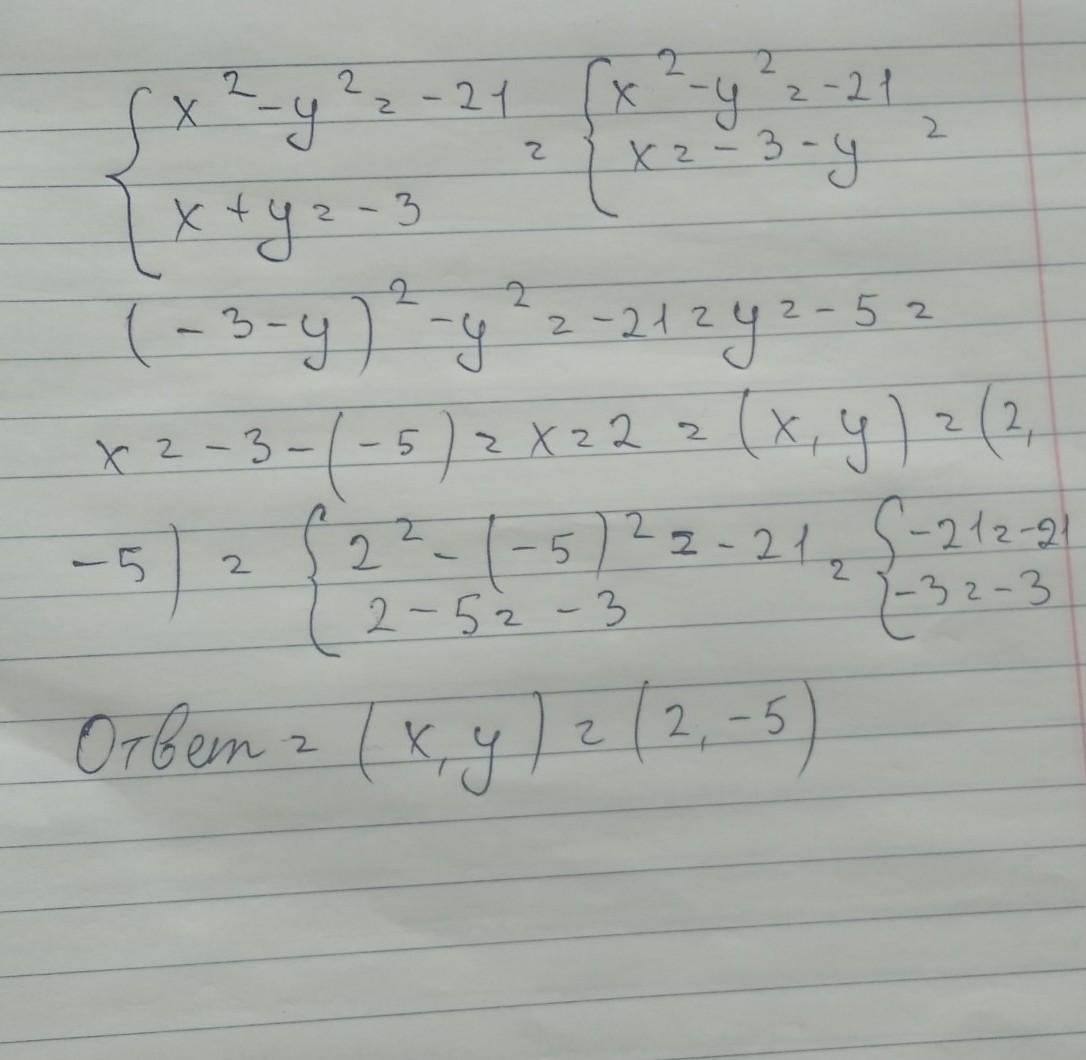 { x² - y² = -21 = { x² - y² = -21
x = -3 - y =
x + y = -3
(-3-y)² - y² = -21 = y = -5 =
x = -3 - (-5) = x = 2 = (x, y) = (2,
-5) = { 2² - (-5)² = -21 = { -21 = -21
2 - 5 = -3 -3 = -3
Ответ = (x, y) = (2, -5)